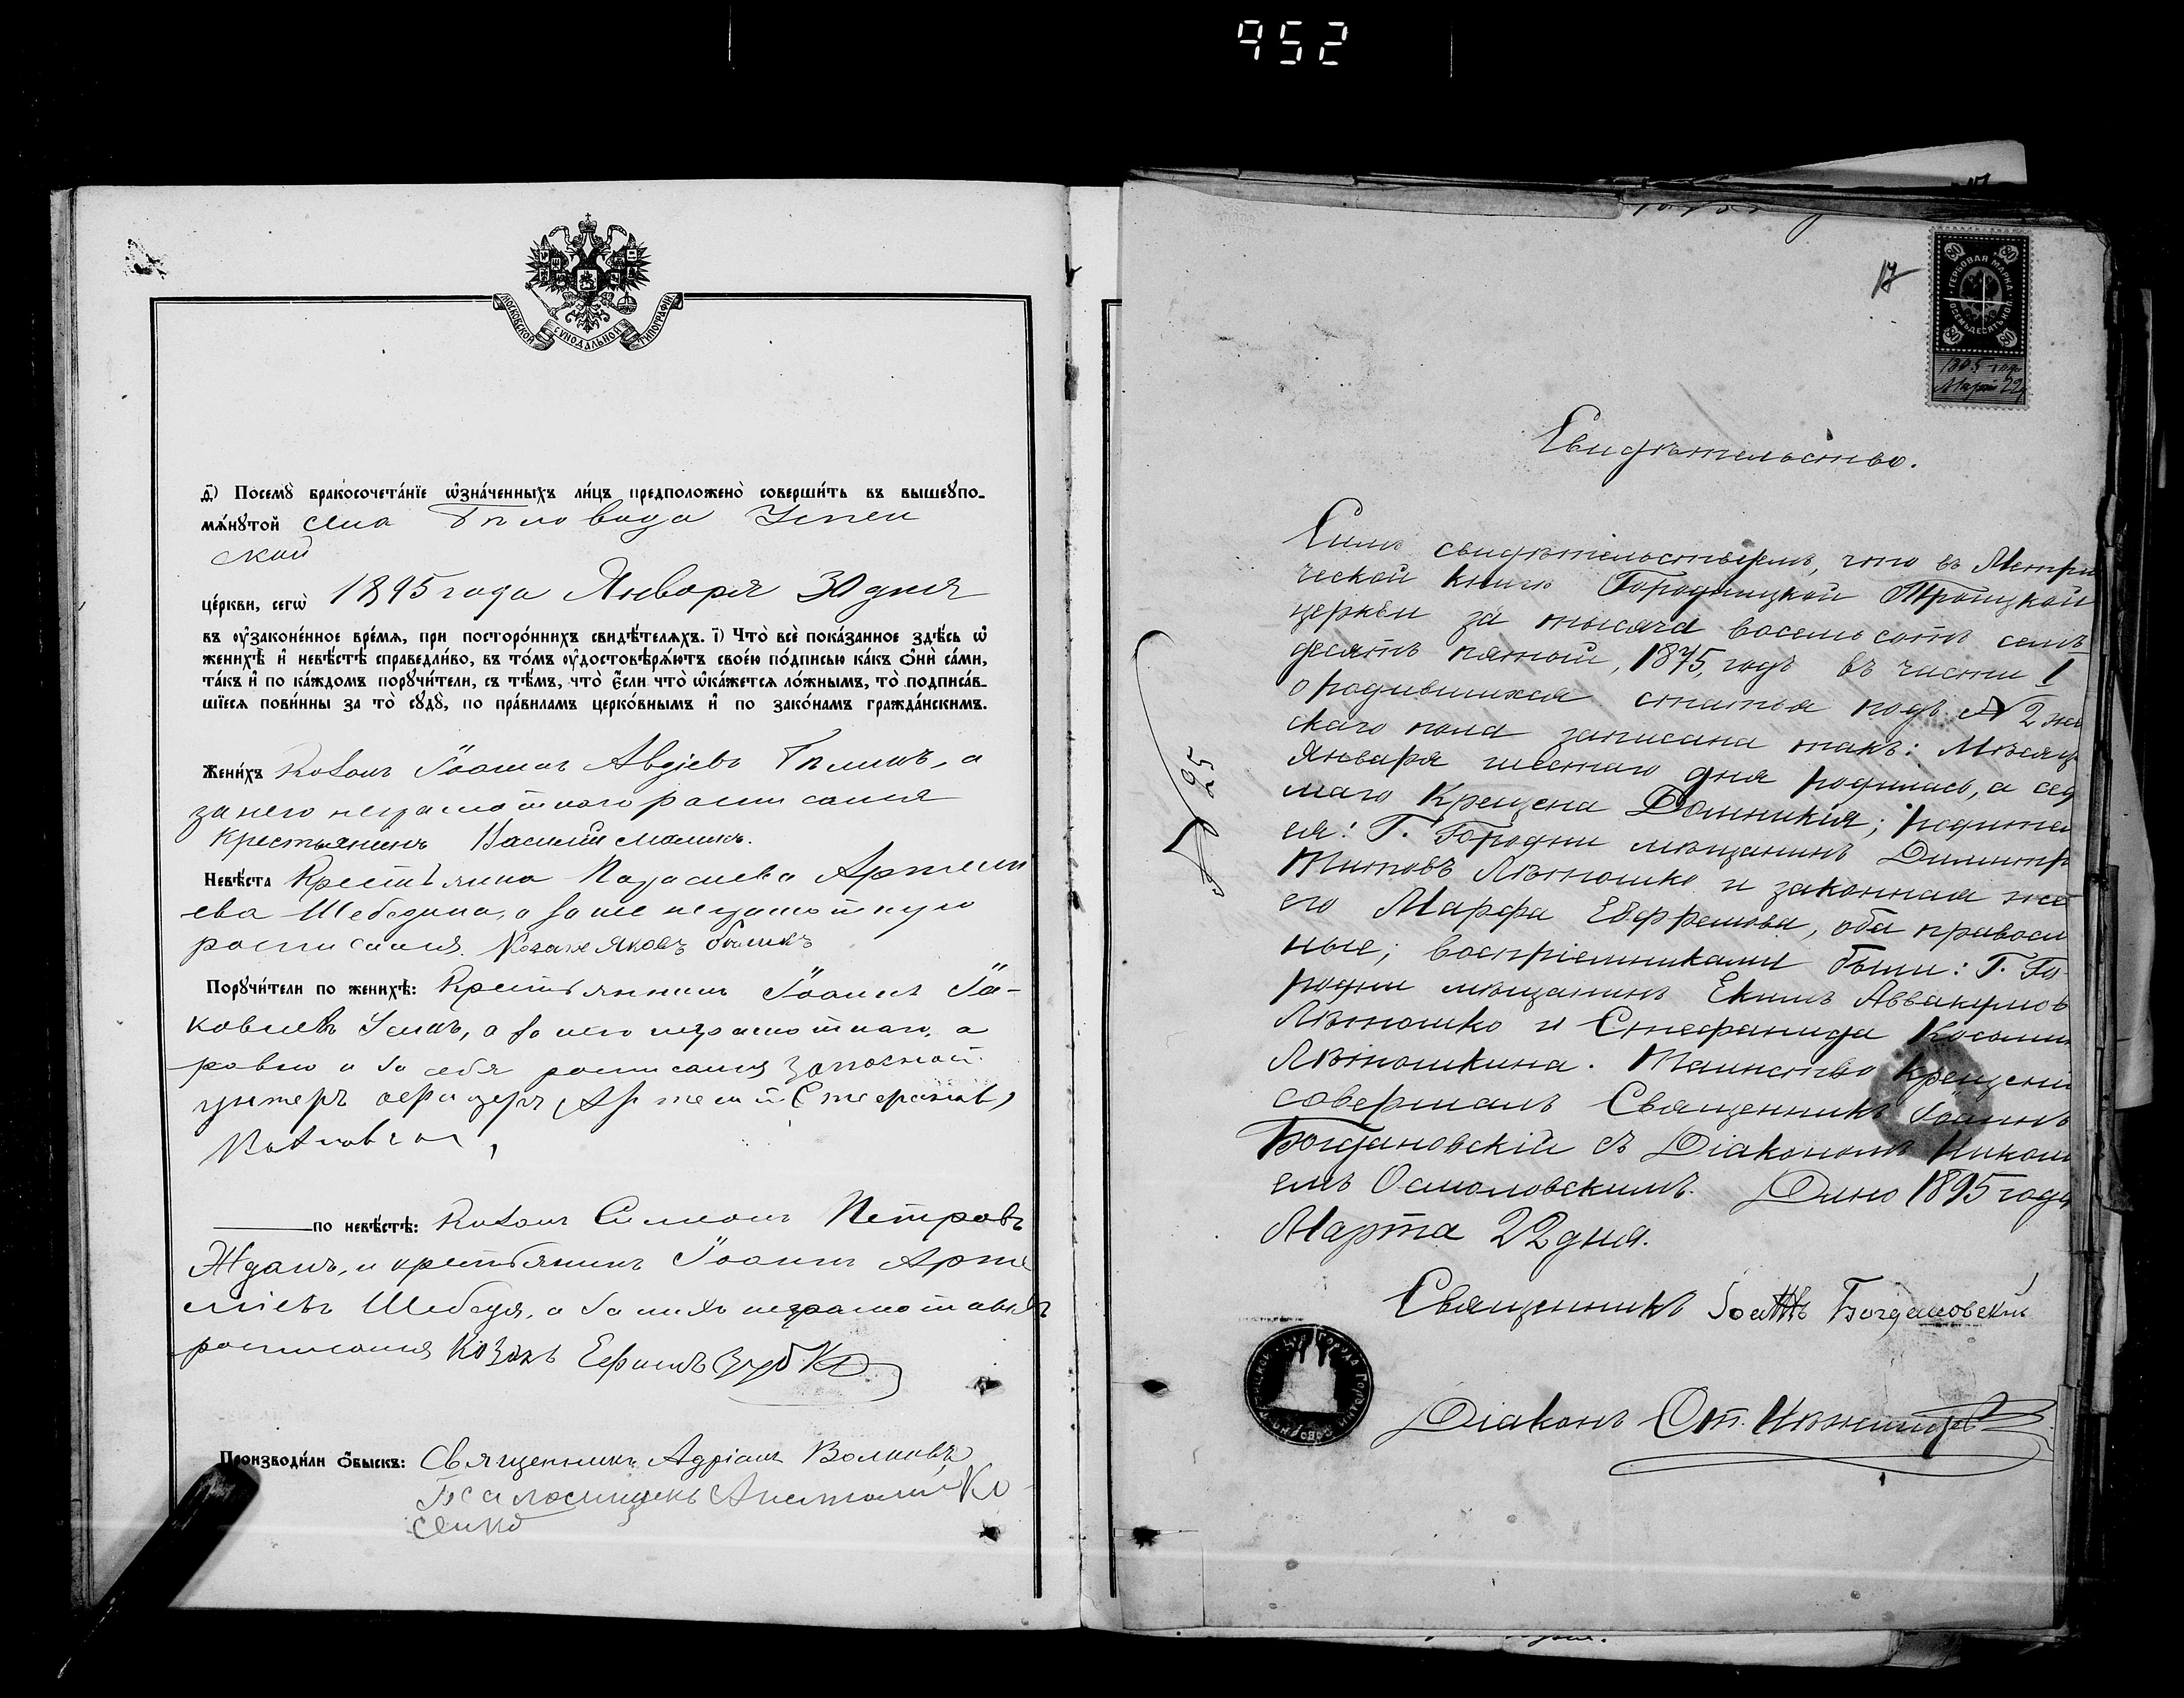 952
МОСКОВСКОЙ СѴНОДАЛЬНОЙ ТИПОГРАФІИ
д҃) Посемꙋ̀ бракосочета́нїе ѡ҆зна́ченныхъ ли́цъ предположено̀ соверши́ть въ вышеꙋпо-
мѧ́нꙋтой села Тиловода Успен
ской
це́ркви, сегѡ̀ 1895 года Января 30 дня
въ ᲂу҆зако́не́нное вре́мѧ, при посторо́ннихъ свидѣ́телѧхъ. і҃) Что̀ всѐ пока́занное здѣ́сь ѡ҆
женихѣ̀ и҆ невѣ́стѣ справедли́во, въ то́мъ ᲂу҆достовѣрѧ́ютъ свое́ю по́дписью ка́къ ѻ҆нѝ са́ми,
та́къ и҆ по ка́ждомъ порꙋчи́тели, съ тѣ́мъ, что̀ є҆́сли что̀ ѡ҆ка́жетсѧ ло́жнымъ, то̀ подписа́в-
шїесѧ пови́нны за то̀ сꙋдꙋ̀, по пра́виламъ церко́внымъ и҆ по зако́намъ гражда́нскимъ.
Жени́хъ Козакъ Іоаннъ Авдіевъ, а
за него неграмотнаго росписался
крестьянинъ Василій Маликъ.
Невѣ́ста Крестьянка Артемі
ева Шебедина, а за нее неграмотную
росписался Козакъ Яковъ
Порꙋчи́тели по женихѣ̀: Крестьянинъ Іоаннъ Іа-
ковлевъ, а за него неграмотнаго, а
равно и за себя росписался запасной
унтеръ офицеръ Артемій Стефановъ
по невѣ́стѣ: Козакъ Симеонъ Петровъ
Жданъ, и крестьянинъ Іоаннъ Арте
міевъ Шебедя, а за нихъ неграмотныхъ
росписался Козакъ Ефимъ Зубко
Производи́ли ѻ҆́быскъ: Священникъ Адріанъ Волковъ
Псаломщикъ Анатолій
17
ГЕРБОВАЯ МАРКА ВОСЕМЬДЕСЯТЪ КОП.
80 80 80 80
1895 года
Марта 22 д
Свидѣтельство.
Симъ свидѣтельствуемъ, что въ Метри
ческой книгѣ Городницкой Троицкой
церкви за тысяча восемьсотъ семь
десятъ пятый, 1875, годъ въ части I
о родившихся статья подъ № 2 жен
скаго пола записана такъ: Мѣсяца
Января шестаго дня родилась, а сед
маго Крещена Домникія; родите
ли: Г. Городни мѣщанинъ Димитр
Титовъ Лѣтошко и законная жен
его Марфа Евфремова, оба правосл
ные; воспріемниками были: Г. Го
родни мѣщанинъ Екимъ Аввакумов
Лѣтошко и Стефанида Косьмин
Лѣтошкина. Таинство крещені
совершалъ Священникъ Іоаннъ
Богдановскій съ Діакономъ Никола
емъ Осмоловскимъ. Дано 1895 года
Марта 22 дня.
№ 25
Священникъ Іоаннъ Богдановскій
Діаконъ Ст.